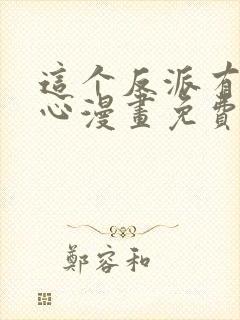 這个反派有
心漫畫免費
鄭容和